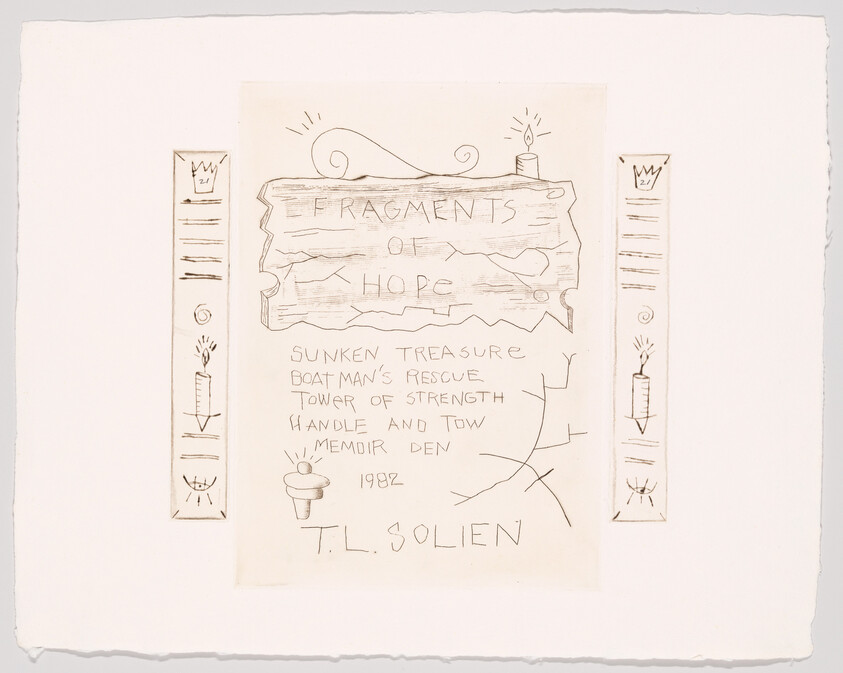 21
21
FRAGMENTS
OF
HOPe
SUNKEN TREASURe
BOATMAN'S RESCUE
TOWeR OF STRENGTH
HANDLE AND TOW
MEMOIR DEN
1982
T.L. SOLIEN